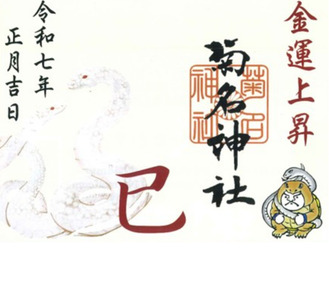 金運上昇
菊名神社
菊名
神社
巳
令和七年
正月吉日